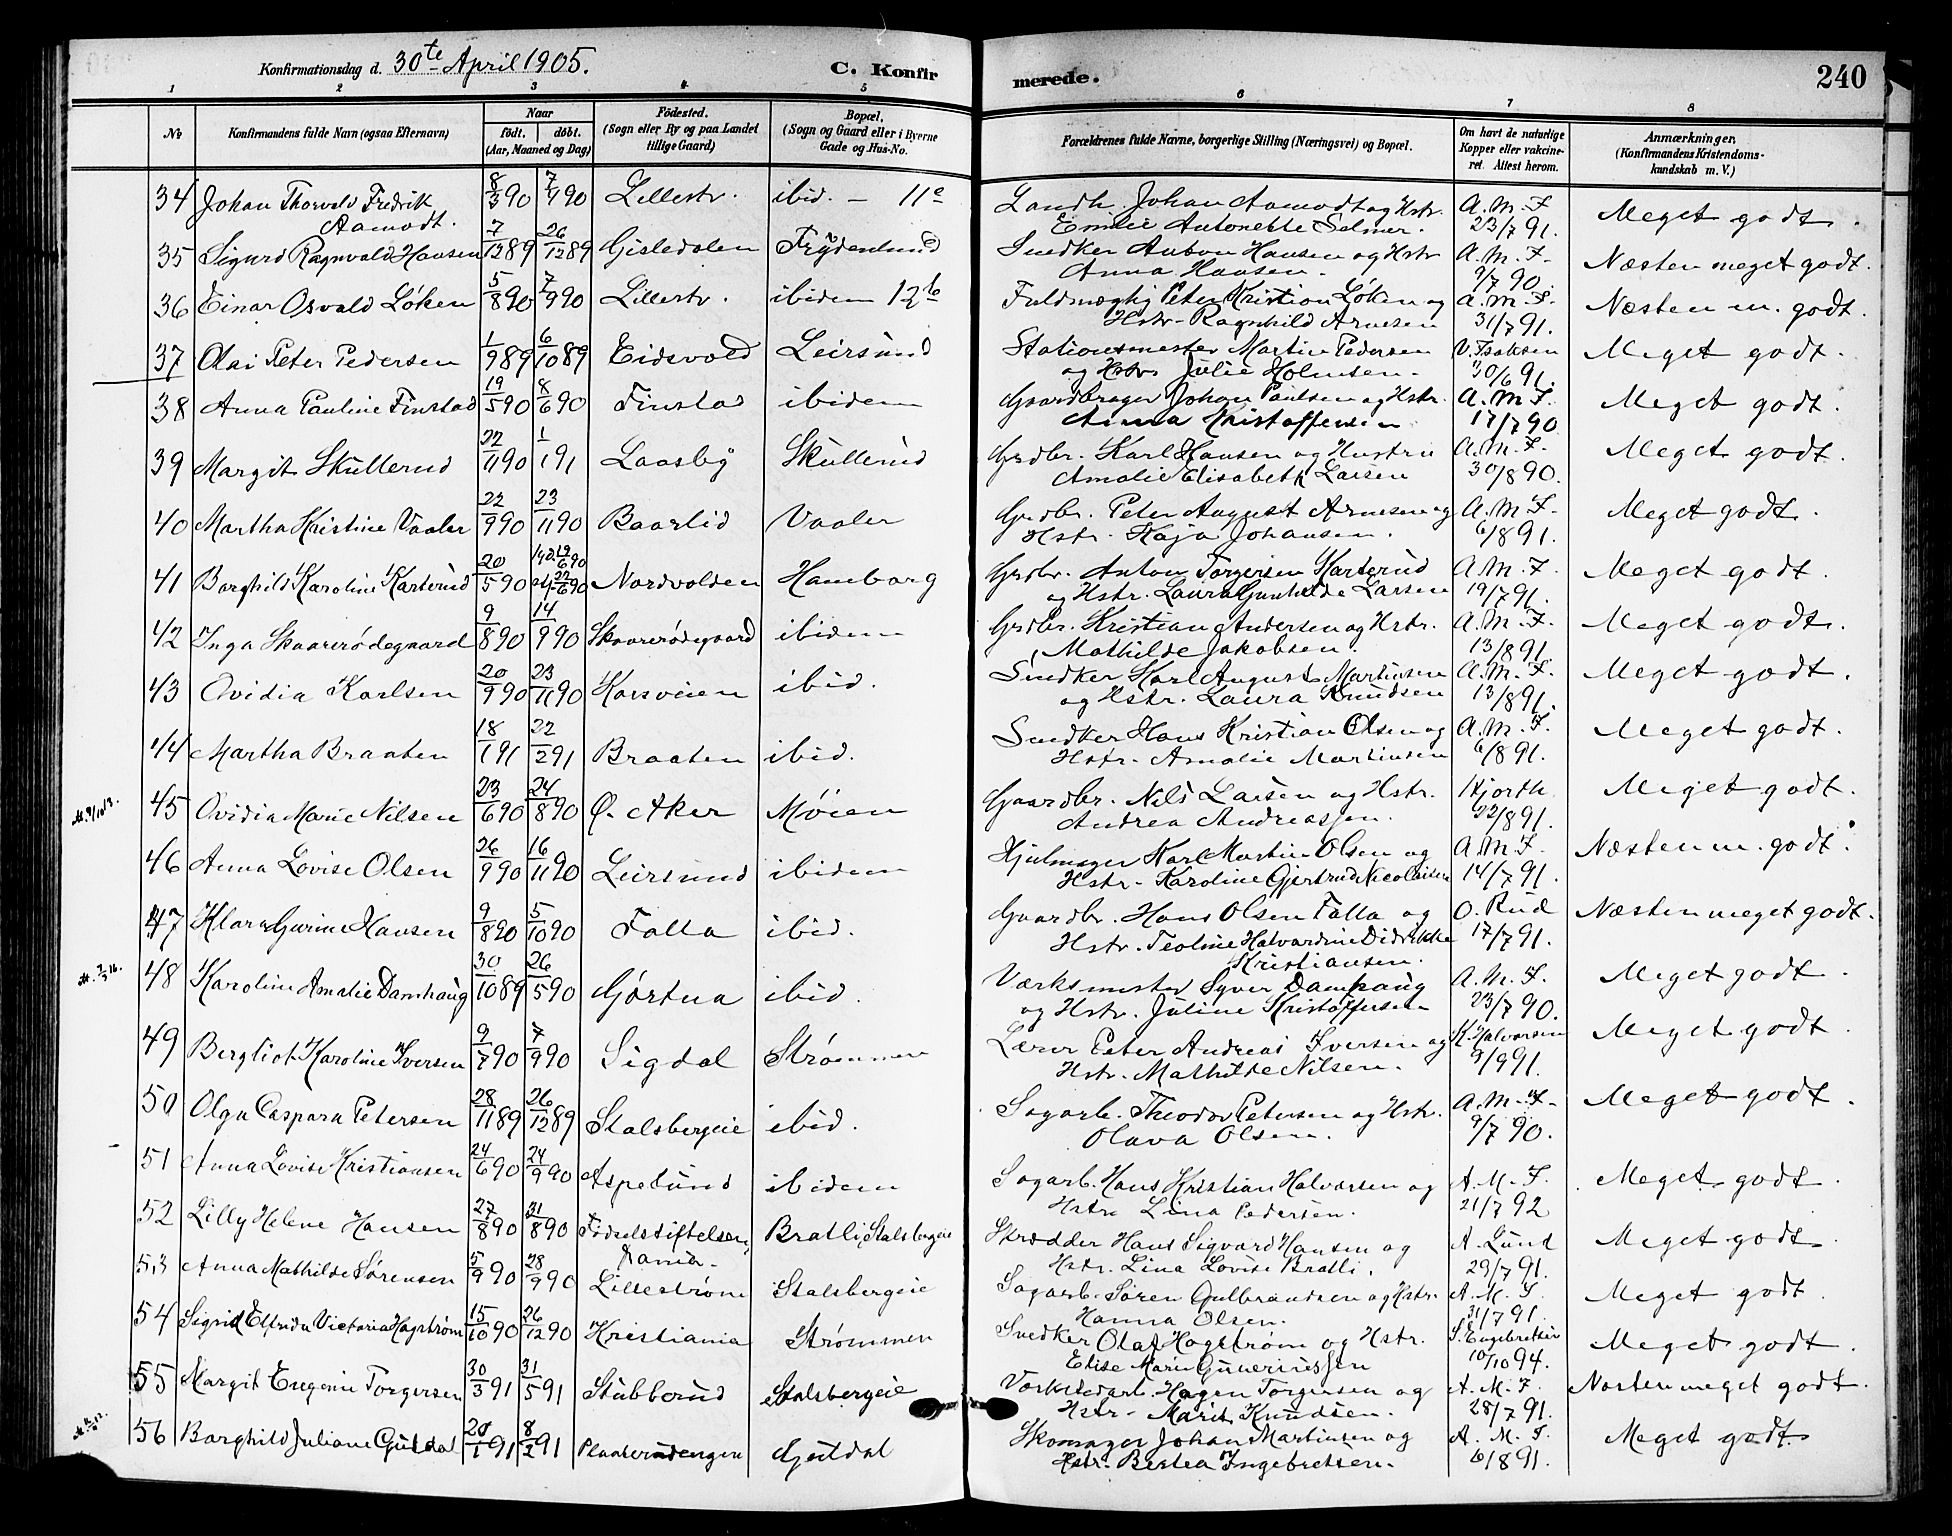 Konfirmationsdag d. 30te April 1905.
C. Konfirmerede.
240
1 2 3 4 5 6 7 8
No
Konfirmandens fulde Navn (ogsaa Efternavn)
Naar
født. døbt.
(Aar, Maaned og Dag)
Fødested.
(Sogn eller By og paa Landet
tillige Gaard)
Bopæl.
(Sogn og Gaard eller i Byerne
Gade og Hus-No.
Forældrenes fulde Navne, borgerlige Stilling (Næringsvei) og Bopæl.
Om havt de naturlige
Kopper eller vakcine-
ret. Attest herom.
Anmærkninger.
(Konfirmandens Kristendoms-
kundskab m. V.)
34 Johan Thorvald Fredrik Aamodt. 8/3 90 7/4 90 Lillestr. ibid. – 11e Landh. Johan Aamodt og Hstr. Emilie Antonette Selmer. A. M. F. 23/7 91. Meget godt.
35 Sigurd Ragnvald Hansen 7/12 89 26/12 89 Gisledalen Frydenlund Snedker Anton Hansen og Hstr Anna Hansen. A. M. F. 9/7 90. Næsten meget godt.
36 Einar Osvald Løken 5/8 90 7/9 90 Lillestr. ibidem 12b Fuldmægtig Peter Kristian Løken og Hstr. Ragnhild Arnesen A. M. F. 31/7 91. Næsten m. godt.
37 Olai Peter Pedersen 1/9 89 6/10 89 Eidsvold Leirsund Stationsmester Martin Pedersen og Hstr. Julie Holmsen. V. Isaksen 30/6 91. Meget godt.
38 Anna Pauline Finstad 19/5 90 8/6 90 Finstad ibidem Gaardbruger Johan Paulsen og Hstr. Anna Kristoffersen A. M. F. 17/7 90 Meget godt.
39 Margit Skullerud 22/11 90 1/1 91 Laasby Skullerud Grdbr. Karl Hansen og Hustru Amalie Elisabeth Larsen A. M. F. 30/8 90. Meget godt.
40 Martha Kristine Vaaler 22/9 90 23/11 90 Baarlid Vaaler Grdbr. Peter August Arnesen og Hstr. Kaja Johansen. A. M. F. 6/8 91. Meget godt.
41 Borghild Karoline Karterud 20/5 90 Nordvolden Hamborg Grdbr. Anton Torgersen Karterud og Hstr. Laura Gunhilde Larsen A. M. F. 19/7 91. Meget godt.
42 Inga Skaarerødegaard 9/8 90 14/9 90 Skaarerødegaard ibidem Grdbr. Kristian Andersen og Hstr. Mathilde Jakobsen. A. M. F. 13/8 91. Meget godt.
43 Ovidia Karlsen 20/9 90 23/11 90 Korsveien ibid. Snedker Karl August Martinsen og Hstr. Laura Knudsen A. M. F. 13/8 91. Meget godt.
44 Martha Braaten 18/1 91 22/2 91 Braaten ibid. Snedker Hans Kristian Olsen og Hstr. Amalie Martinsen A. M. F. 6/8 91. Meget godt.
45 Ovidia Marie Nilsen 23/6 90 24/8 90 Ø. Aker Møien Gaardbr. Nils Larsen og Hstr. Andrea Andreassen. Hjorth 22/8 91. Meget godt.
46 Anna Lovise Olsen 26/9 90 16/11 90 Leirsund ibidem Hjulmager Karl Martin Olsen og Hstr. Karoline Gjertrud Nicolaisen A. M. F. 14/7 91. Næsten m. godt.
47 Klara Gurine Hansen 9/8 90 5/10 90 Falla ibid. Gaardbr. Hans Olsen Falla og Hstr. Teoline Halvardine Didrikke Kristiansen. O. Rud 17/7 91. Næsten meget godt.
48 Karoline Amalie Damhaug 30/10 89 26/5 90 Gjørtua ibid. Værksmester Syver Damhaug og Hstr. Juline Kristoffersen A. M. F. 23/7 90. Meget godt.
49 Bergliot Karoline Iversen 9/7 90 7/9 90 Sigdal Strømmen Lærer Peter Andreas Iversen og Hstr. Mathilde Nilsen. K. Halvorsen 9/9 91. Meget godt.
50 Olga Caspara Petersen 28/11 89 26/12 89 Stalsbergeie ibid. Sagarb. Theodor Petersen og Hstr. Olava Olsen. A. M. F. 9/7 90. Meget godt.
51 Anna Lovise Kristiansen 24/6 90 24/9 90 Aspelund ibidem Sagarb. Hans Kristian Halvorsen og Hstr. Lina Pedersen. A. M. F. 21/7 92 Meget godt.
52 Lilly Helene Hansen 27/8 90 31/8 90 Fødselsstiftelsen, Bratli, Stalsbergeie Skrædder Hans Sigvard Hansen og Hstr. Lina Lovise Bratli. A. Lund 29/7 91. Meget godt.
53 Anna Mathilde Sørensen 5/9 90 28/9 90 Lillestrøm Stalsbergeie Sagarb. Søren Gulbrandsen og Hstr. Hanna Olsen. A. M. F. 31/7 91. Meget godt.
54 Sigrid Elfrida Victoria Hagstrøm 15/10 90 26/12 90 Kristiania Strømmen Snedker Olaf Hagstrøm og Hstr. Elise Marie Gunerinssen S. Engebretsen 10/10 94. Meget godt.
55 Margit Eugenie Torgersen 30/3 91 31/5 91 Stubberud Stalsbergeie Værkstedarb. Hagen Torgersen og Hstr. Marit Knudsen. A. M. F. 28/7 91. Næsten meget godt.
56 Borghild Juliane Guldal 20/1 91 8/2 91 Plaaterudengen Guldal Skomager Johan Martinsen og Hstr. Bertea Ingebretsen. A. M. F. 6/8 91. Meget godt.